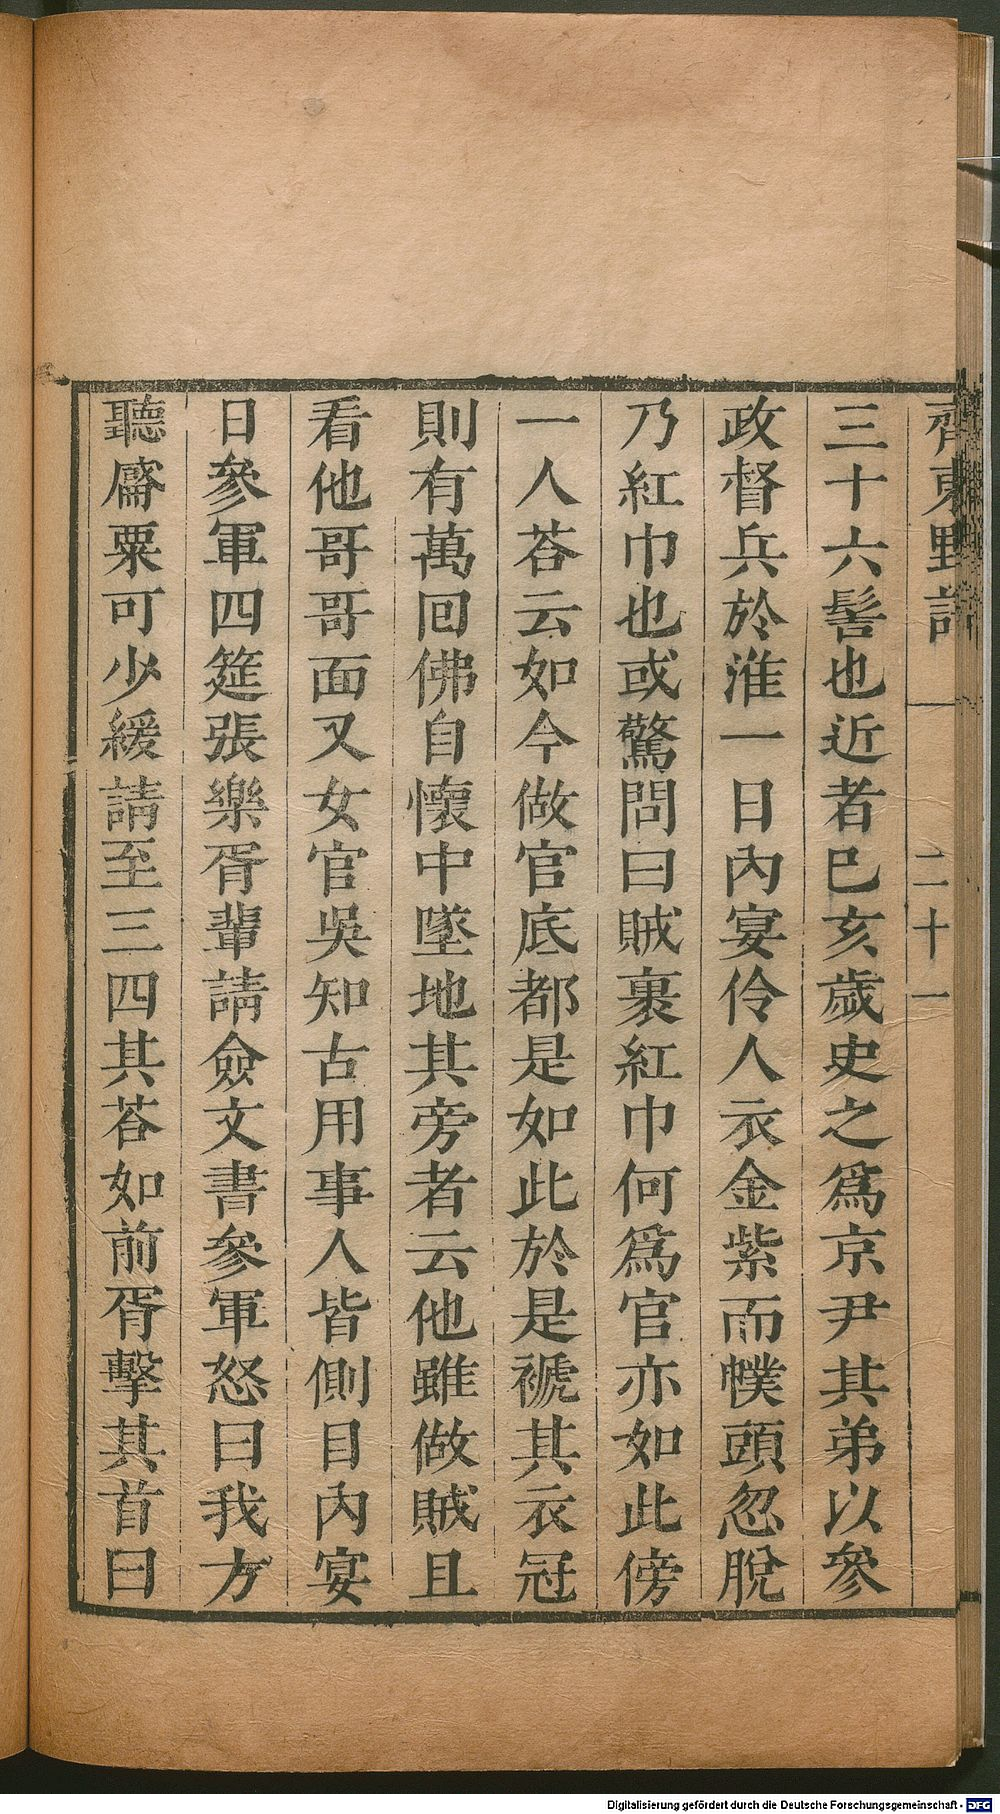 齊東野語
二十一
三十六髻也近者巳亥歲史之爲京尹其弟以參
政督兵於淮一日內宴伶人衣金紫而幞頭忽脫
乃紅巾也或驚問曰賊裹紅巾何爲官亦如此傍
一人荅云如今做官底都是如此於是褫其衣冠
則有萬回佛自懷中墜地其旁者云他雖做賊且
看他哥哥面又女官吳知古用事人皆側目內宴
日參軍四筵張樂胥輩請僉文書參軍怒曰我方
聽觱栗可少緩請至三四其荅如前胥擊其首曰
Digitalisierung gefördert durch die Deutsche Forschungsgemeinschaft - DFG